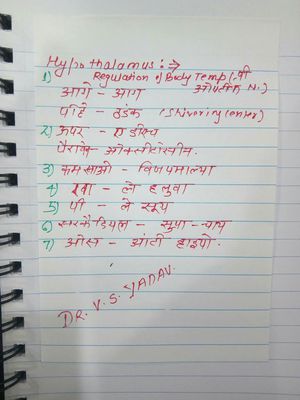 Hypothalamus :→
1) Regulation of Body Temp (प्री
आगे - आग ओप्टीक N.)
पीछे - ठंडक (Shivering Center)
2) ऊपर - ए डीएच
पैरावे - ऑक्सीटोसीन.
3) कम खाओ - विजयमाल्या
4) खा - ले हलुवा
5) पी - ले सूप
6) सरकैडियल - सुप्रा - चाय
7) ओस - आंटी हाइपो.
DR. V. S. YADAV.